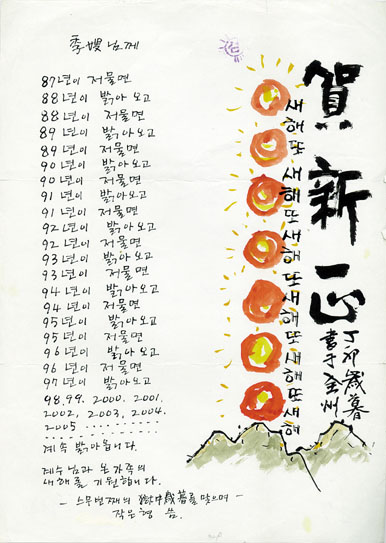 季嫂님께
87년이 저물면
88년이 밝아오고
88년이 저물면
89년이 밝아오고
89년이 저물면
90년이 밝아오고
90년이 저물면
91년이 밝아오고
91년이 저물면
92년이 밝아오고
92년이 저물면
93년이 밝아오고
93년이 저물면
94년이 밝아오고
94년이 저물면
95년이 밝아오고
95년이 저물면
96년이 밝아오고
96년이 저물면
97년이 밝아오고
98, 99, 2000, 2001,
2002, 2003, 2004,
2005 ............
계속 밝아옵니다.
계수님과 온 가족의
새해를 기원합니다.
- 스무번째의 獄中歲暮를 맞으며 -
작은형 씀.
賀新正
丁卯歲暮
書于全州
새해 또 새해 또 새해 또 새해 또 새해 또 새해 또 새해